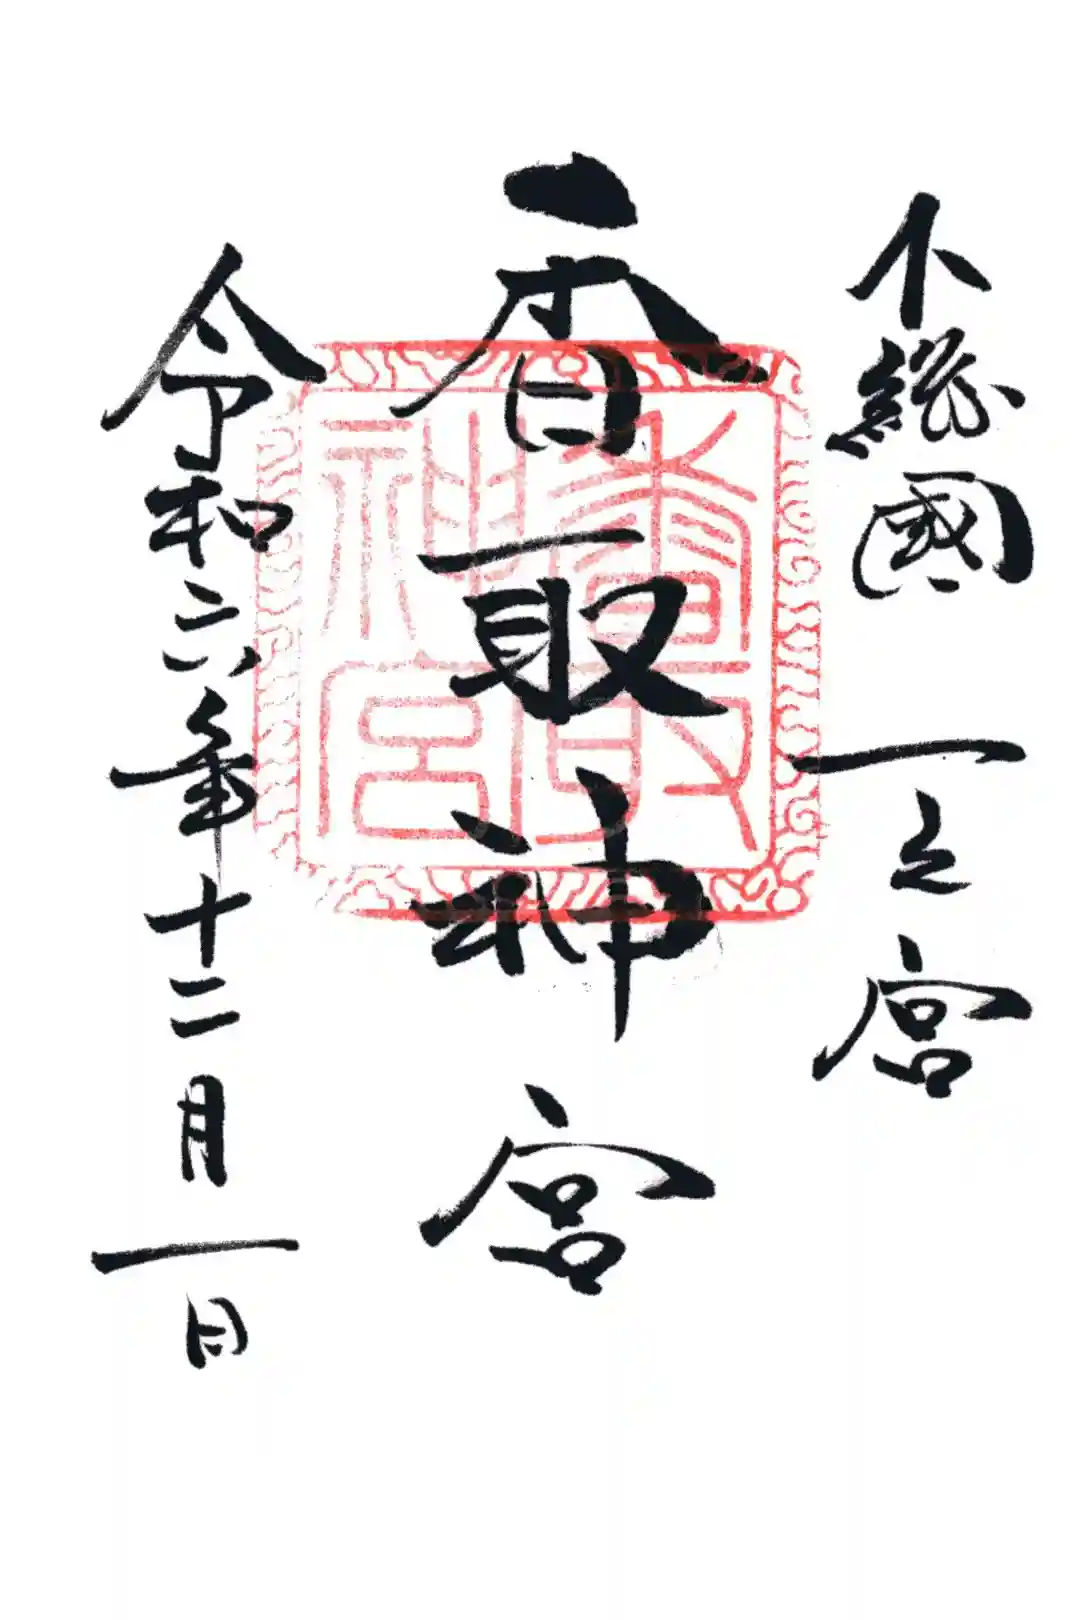 下総國 一之宮
香取神宮
香取神宮
令和六年十二月一日